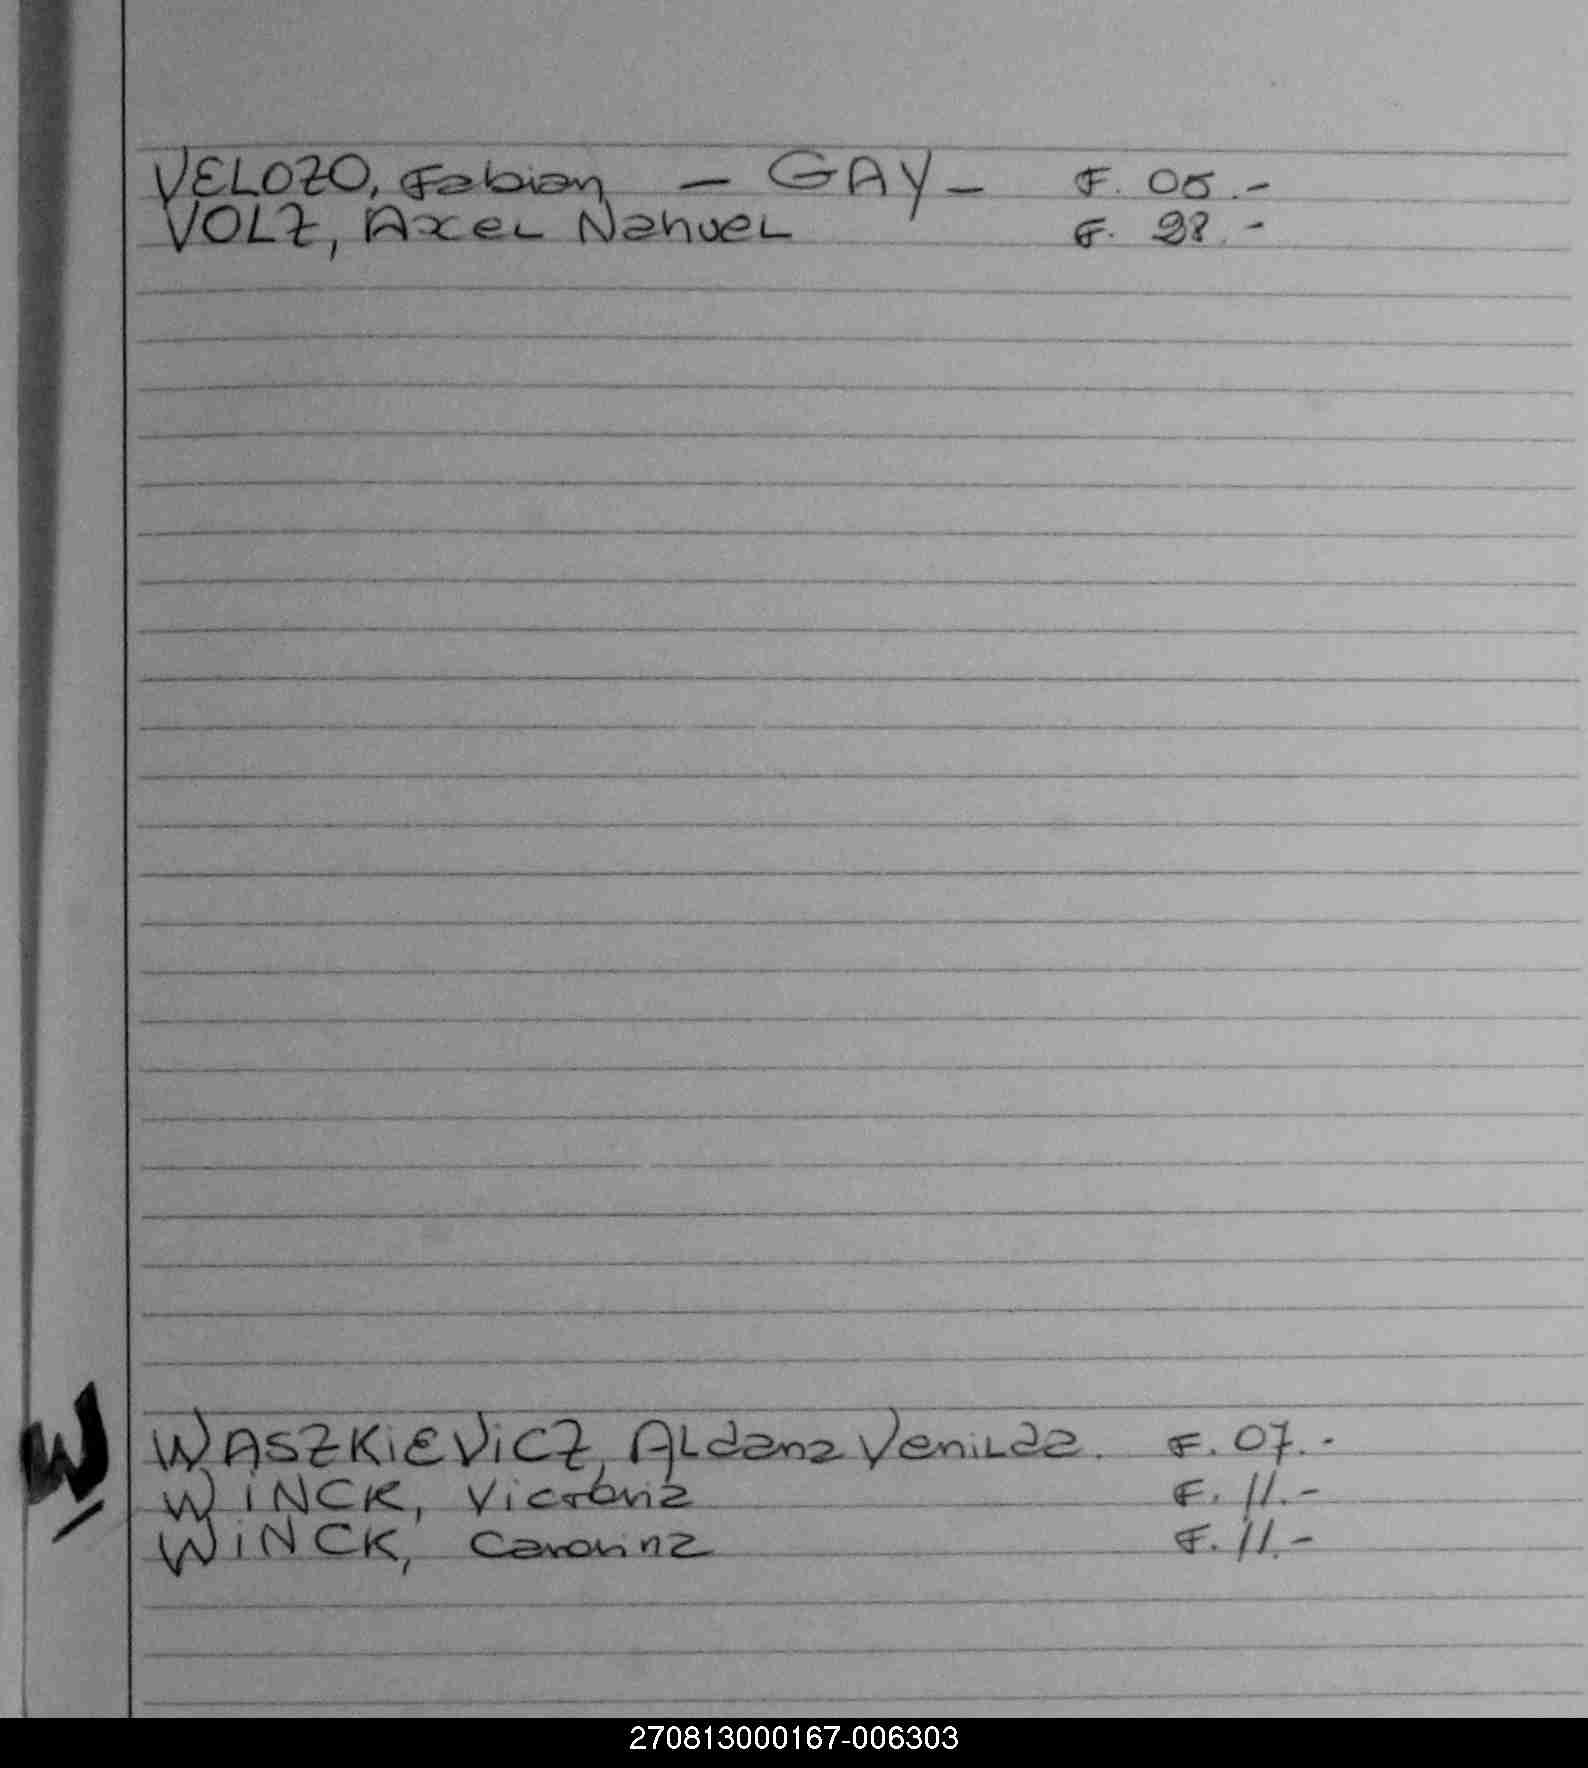 VELOZO, Fabian - GAY - F. 05.-
VOLZ, Axel Nahuel F. 28.-
W
WASZKIEVICZ, Aldana Venilda. F. 07.-
WINCK, Victoria F. 11.-
WINCK, Carolina F. 11.-
270813000167-006303